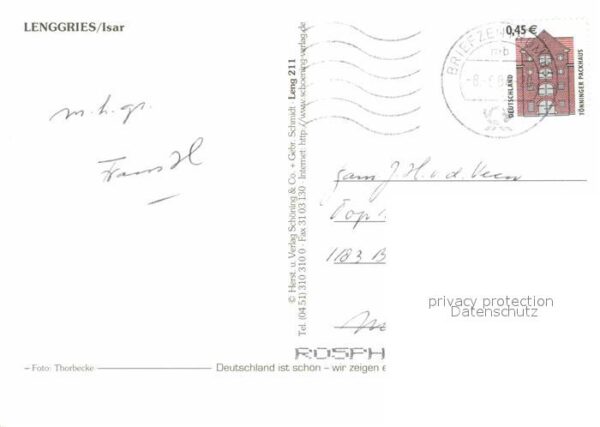 LENGGRIES/Isar
m. h. gr.
Frans H
© Herst. u. Verlag Schöning & Co. + Gebr. Schmidt · Leng 211
Tel. (04 51) 310 310 0 · Fax 31 03 130 · Internet: http://www.schoening-verlag.de
BRIEFZENTRUM
0,45 €
DEUTSCHLAND
TÖNNINGER PACKHAUS
fam J. H. v. d. Veen
1183 B
privacy protection
Datenschutz
ROSPH
– Foto: Thorbecke
Deutschland ist schön – wir zeigen e